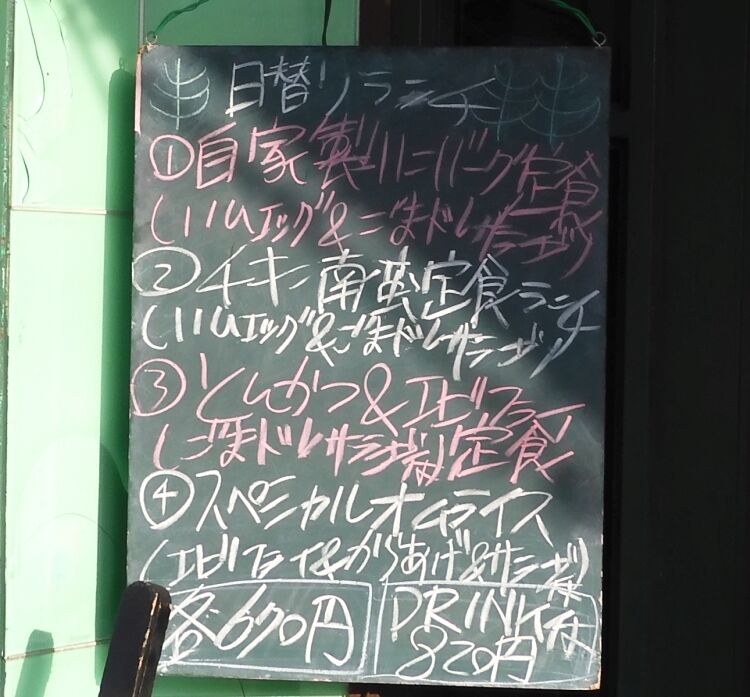 日替りランチ
①自家製ハンバーグ定食
(ハムエッグ&ごまドレサラダ付)
②チキン南蛮定食ランチ
(ハムエッグ&ごまドレサラダ付)
③とんかつ&エビフライ
(ごまドレサラダ付)定食
④スペシャルオムライス
(エビフライ&からあげ&サラダ付)
各670円
DRINK付
820円